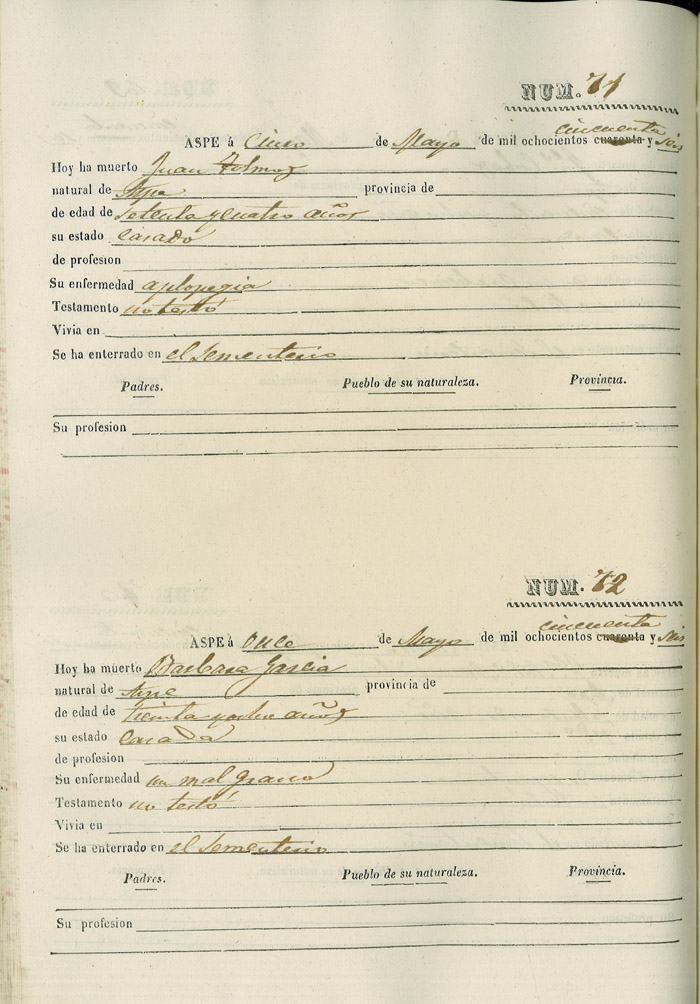 NUM. 71
cincuenta
ASPE á Cinco de Mayo de mil ochocientos cuarenta y seis
Hoy ha muerto Juan
natural de Aspe provincia de
de edad de setenta y cuatro años
su estado casado
de profesion
Su enfermedad aplopegia
Testamento no testó
Vivia en
Se ha enterrado en el Sementerio
Padres. Pueblo de su naturaleza. Provincia.
Su profesion
NUM. 72
cincuenta
ASPE á Once de Mayo de mil ochocientos cuarenta y seis
Hoy ha muerto Barbara Garcia
natural de Aspe provincia de
de edad de treinta y ocho años
su estado casada
de profesion
Su enfermedad un mal grano
Testamento no testó
Vivia en
Se ha enterrado en el Sementerio
Padres. Pueblo de su naturaleza. Provincia.
Su profesion